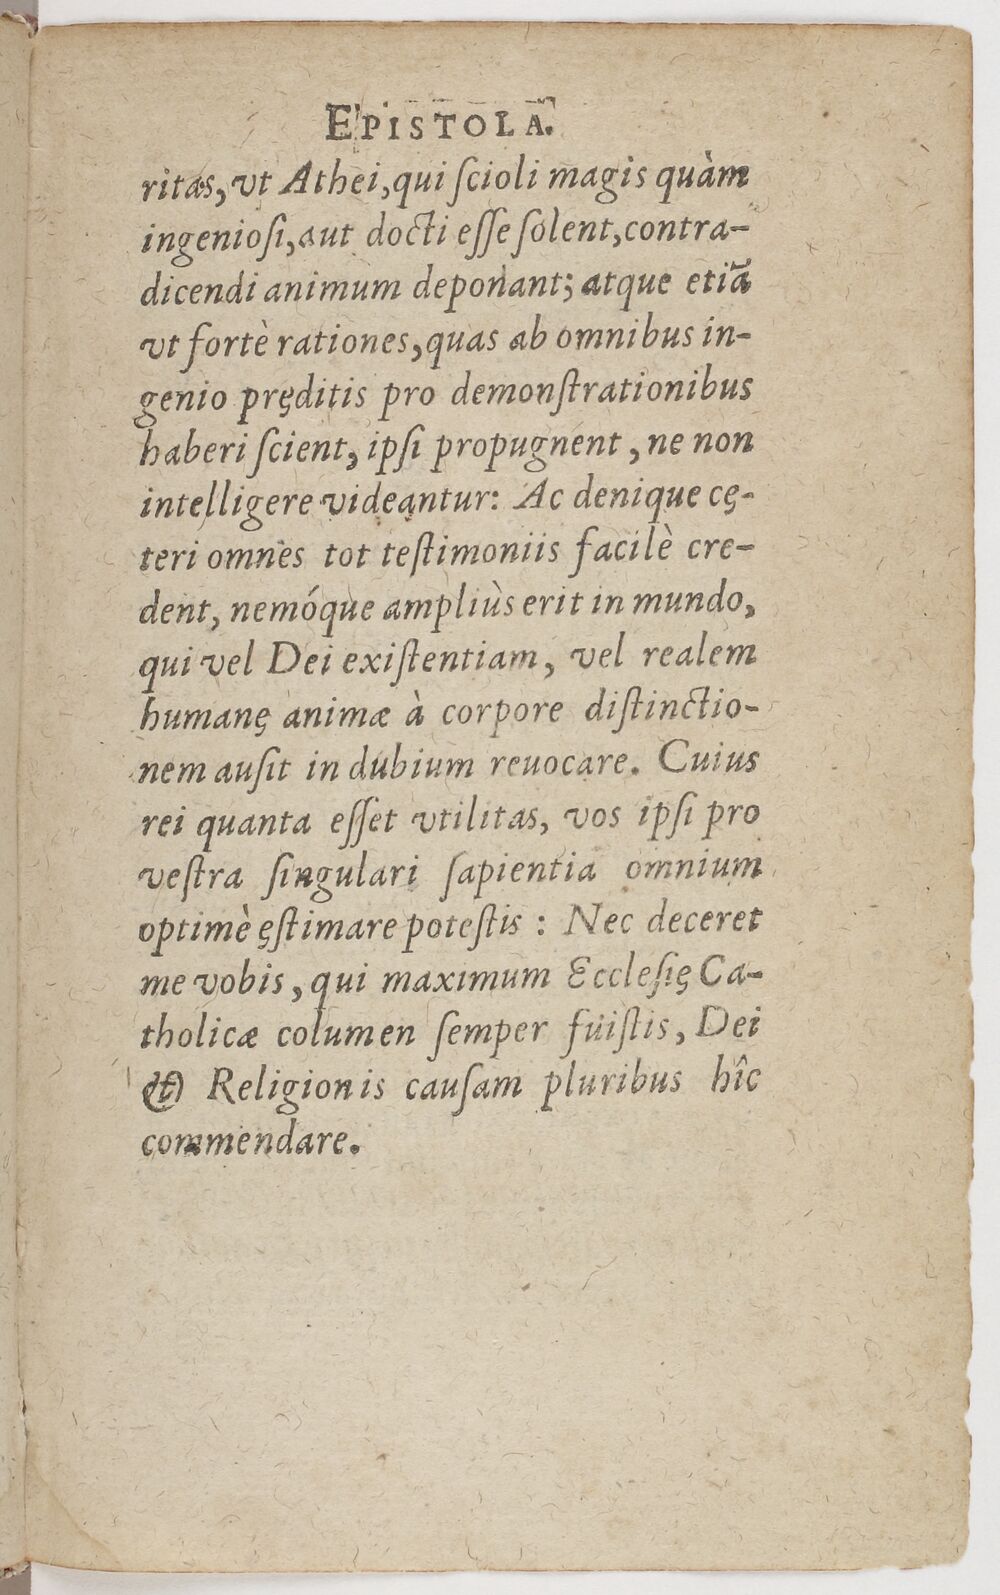 EPISTOLA.
ritas, vt Athei, qui ſcioli magis quàm
ingenioſi, aut docti eſſe ſolent, contra-
dicendi animum deponant; atque etiã
vt fortè rationes, quas ab omnibus in-
genio pręditis pro demonſtrationibus
haberi ſcient, ipſi propugnent, ne non
intelligere videantur: Ac denique cę-
teri omnes tot teſtimoniis facilè cre-
dent, nemóque ampliùs erit in mundo,
qui vel Dei exiſtentiam, vel realem
humanę animæ à corpore diſtinctio-
nem auſit in dubium reuocare. Cuius
rei quanta eſſet vtilitas, vos ipſi pro
veſtra ſingulari ſapientia omnium
optimè ęſtimare poteſtis: Nec deceret
me vobis, qui maximum Eccleſię Ca-
tholicæ columen ſemper fuiſtis, Dei
& Religionis cauſam pluribus hîc
commendare.